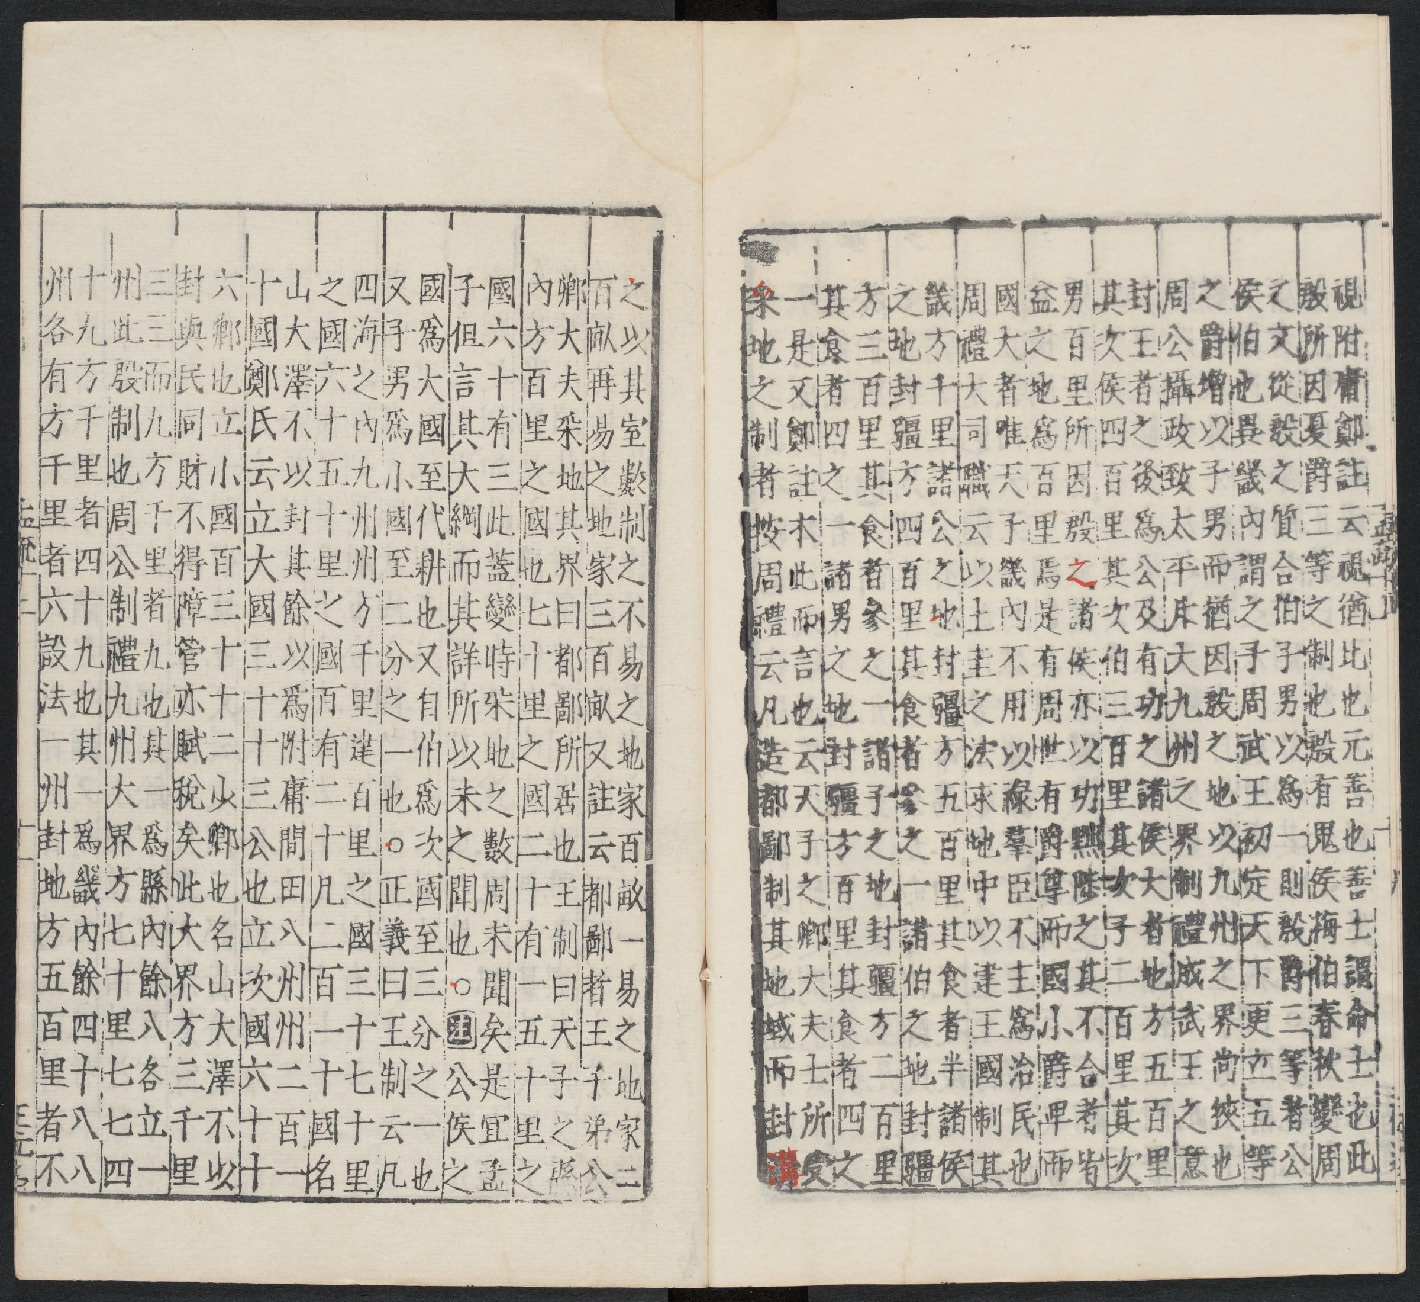 視附庸鄭註云視猶比也元善也善士謂命士也此
殷所因夏爵三等之制也殷有鬼侯梅伯春秋變周
之文從殷之質合伯子男以爲一則殷爵三等者公
侯伯也異畿內謂之子周武王初定天下更立五等
之爵增以子男而猶因殷之地以九州之界尚狹也
周公攝政致太平斥大九州之界制禮成武王之意
封王者之後爲公及有功之諸侯大者地方五百里
其次侯四百里其次伯三百里其次子二百里其次
男百里所因殷之諸侯亦以功黜陟之其不合者皆
益之地爲百里焉是有周世有爵尊而國小爵卑而
國大者唯天子畿內不用以祿羣臣不主爲治民也
周禮大司職云以土圭之法求地中以建王國制其
畿方千里諸公之地封疆方五百里其食者半諸侯
之地封疆方四百里其食者參之一諸伯之地封疆
方三百里其食者參之一諸子之地封疆方二百里
其食者四之一諸男之地封疆方百里其食者四之
一是又鄭註本此而言也云天子之卿大夫士所受
采地之制者按周禮云凡造都鄙制其地域而封溝
之以其室數制之不易之地家百畝一易之地家二
百畝再易之地家三百畝又註云都鄙者王千弟公
卿大夫采地其界曰都鄙所居也王制曰天子之縣
內方百里之國九七十里之國二十有一五十里之
國六十有三此蓋變時采地之數周未聞矣是宜孟
子但言其大綱而其詳所以未之聞也○注公侯之
國爲大國至代耕也又自伯爲次國至三分之一也
又子男爲小國至二分之一也○正義曰王制云凡
四海之內九州州方千里建百里之國三十七十里
之國六十五十里之國百有二十凡二百一十國名
山大澤不以封其餘以爲附庸間田八州州二百一
十國鄭氏云立大國三十十三公也立次國六十十
六卿也立小國百三十十二小卿也名山大澤不以
封與民同財不得障管亦賦稅矣此大界方三千里
三三而九方千里者九也其一爲縣內餘八各立一
州此殷制也周公制禮九州大界方七十里七七四
十九方千里者四十九也其一爲畿內餘四十八八
州各有方千里者六設法一州封地方五百里者不